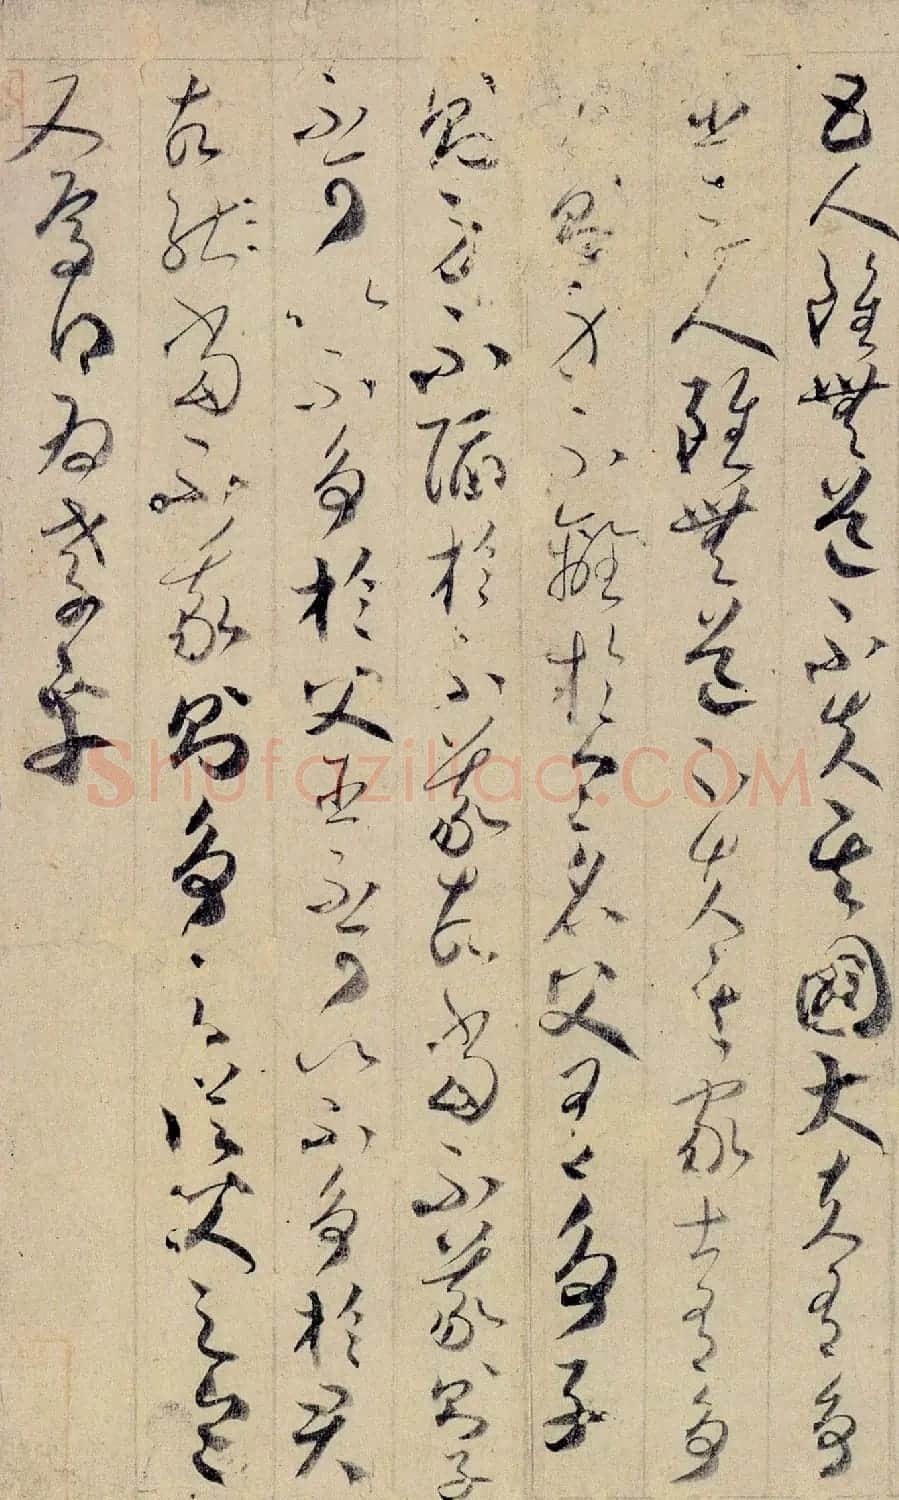 五人雖無道不失其國大夫有爭
臣三人雖無道不失其家士有爭
友則身不離於令名父有爭子
則身不陷於不義故當不義則子
不可以不爭於父臣不可以不爭於君
故當不義則爭之從父之令
又焉得為孝乎
Shufaziliao.COM